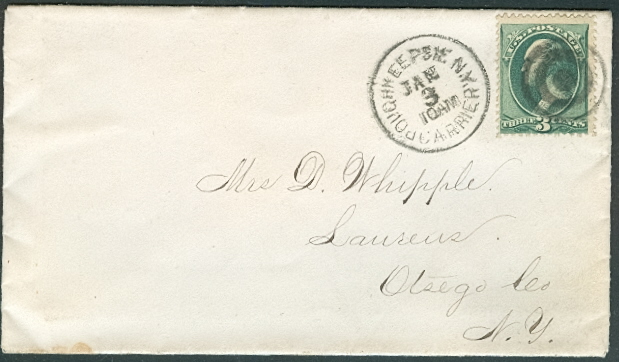 POUGHKEEPSIE N.Y.
JAN
3
10AM
CARRIER
U.S. POSTAGE
THREE 3 CENTS
Mrs D. Whipple.
Laurens.
Otsego Co
N.Y.